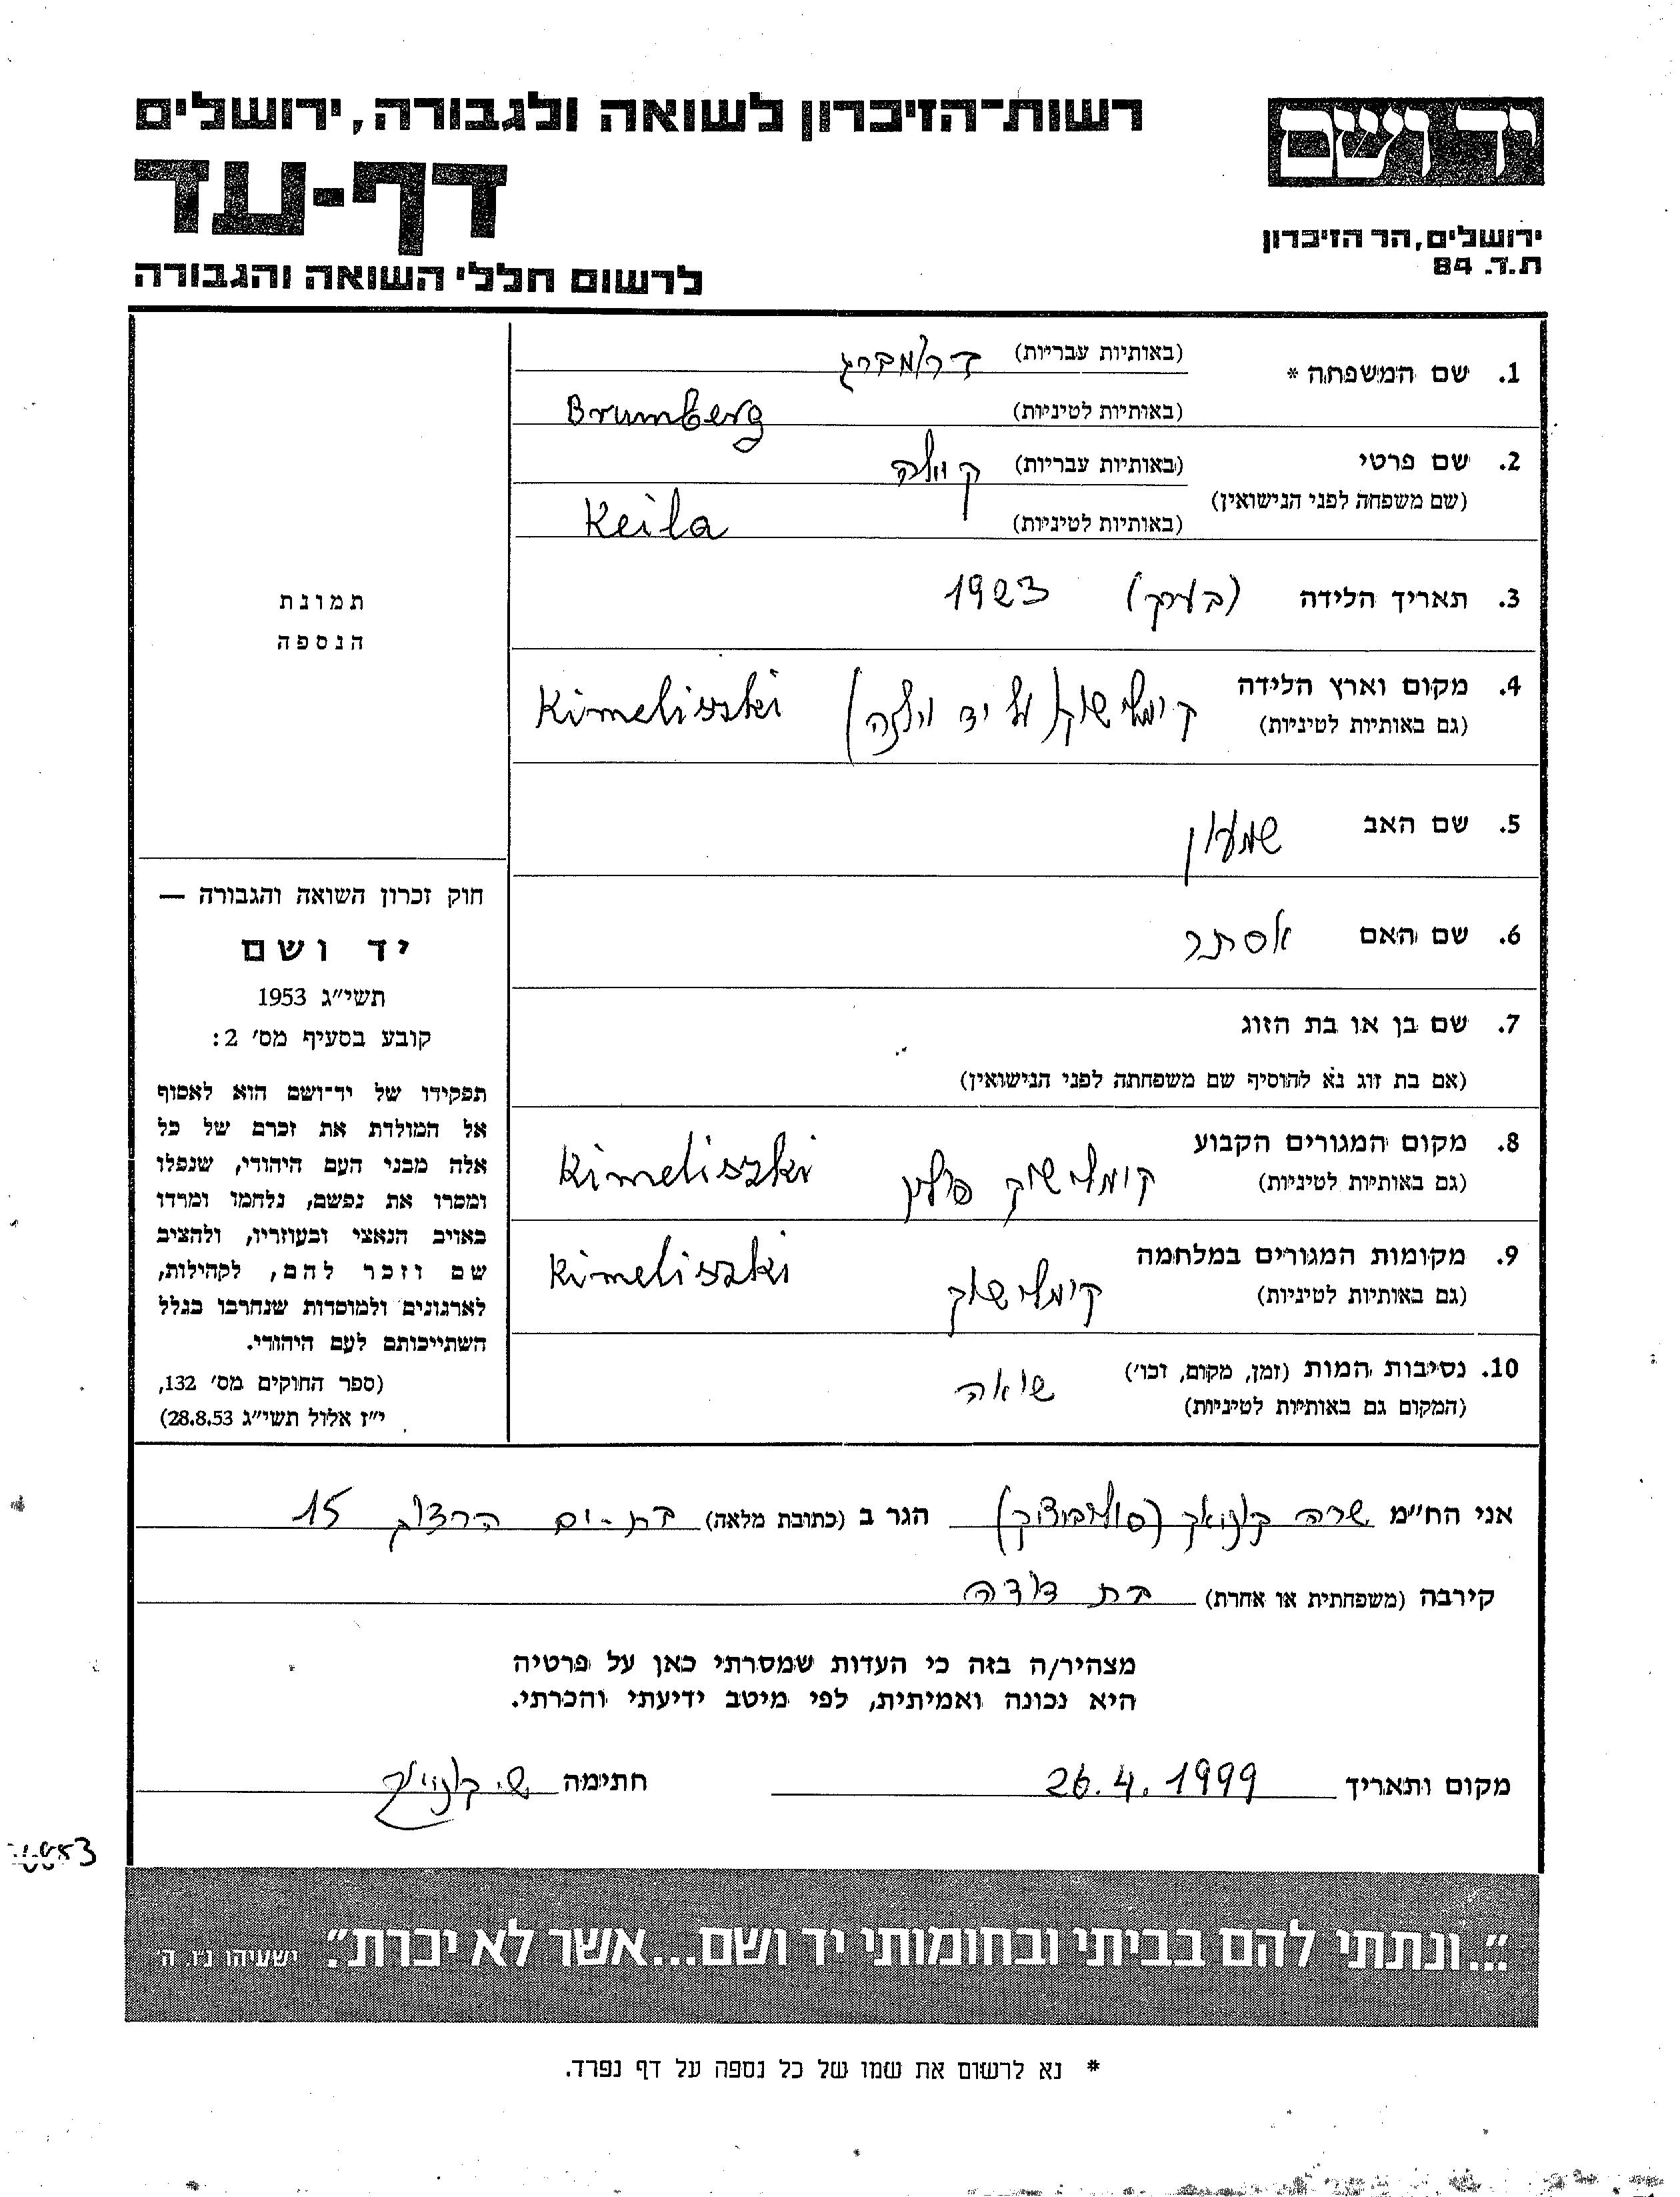 רשות־הזיכרון לשואה ולגבורה, ירושלים
יד ושם
דף-עד
ירושלים, הר הזיכרון
ת.ד. 84
לרשום חללי השואה והגבורה
1. שם המשפחה * (באותיות עבריות) ברומברג
(באותיות לטיניות) Brumberg
2. שם פרטי (באותיות עבריות) קיילה
(שם משפחה לפני הנישואין)
(באותיות לטיניות) Keila
3. תאריך הלידה (בערך) 1923
4. מקום וארץ הלידה קומלישוק (על יד וילנה) Kimeliszki
(גם באותיות לטיניות)
5. שם האב שמעון
6. שם האם אסתר
7. שם בן או בת הזוג
(אם בת זוג נא להוסיף שם משפחתה לפני הנישואין)
8. מקום המגורים הקבוע קומלישוק פולין Kimeliszki
(גם באותיות לטיניות)
9. מקומות המגורים במלחמה קומלישוק Kimeliszki
(גם באותיות לטיניות)
10. נסיבות המות (זמן, מקום, וכו') שואה
(המקום גם באותיות לטיניות)
תמונת
הנספה
חוק זכרון השואה והגבורה —
יד ושם
תשי"ג 1953
קובע בסעיף מס' 2:
תפקידו של יד־ושם הוא לאסוף
אל המולדת את זכרם של כל
אלה מבני העם היהודי, שנפלו
ומסרו את נפשם, נלחמו ומרדו
באויב הנאצי ובעוזריו, ולהציב
שם וזכר להם, לקהילות,
לארגונים ולמוסדות שנחרבו בגלל
השתייכותם לעם היהודי.
(ספר החוקים מס' 132,
י"ז אלול תשי"ג 28.8.53)
אני הח"מ שרה הגר ב (כתובת מלאה) בת-ים 15
קירבה (משפחתית או אחרת) בת דודה
מצהיר/ה בזה כי העדות שמסרתי כאן על פרטיה
היא נכונה ואמיתית, לפי מיטב ידיעתי והכרתי.
מקום ותאריך 26.4.1999 חתימה
"...ונתתי להם בביתי ובחומותי יד ושם...אשר לא יכרת". ישעיהו נ"ו, ה'
* נא לרשום את שמו של כל נספה על דף נפרד.